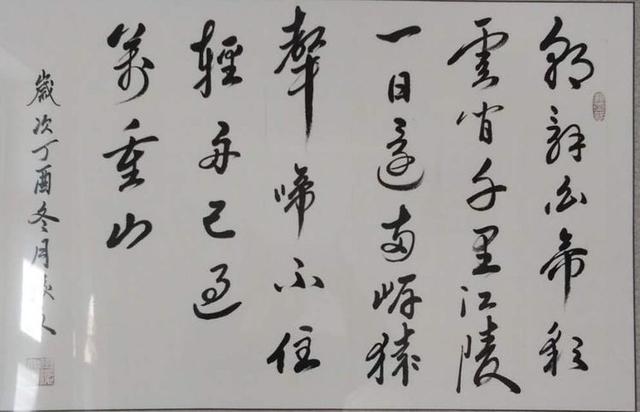 朝辞白帝彩
雲間千里江陵
一日還两岸猿
聲啼不住
輕舟已過
萬重山
歲次丁酉冬月